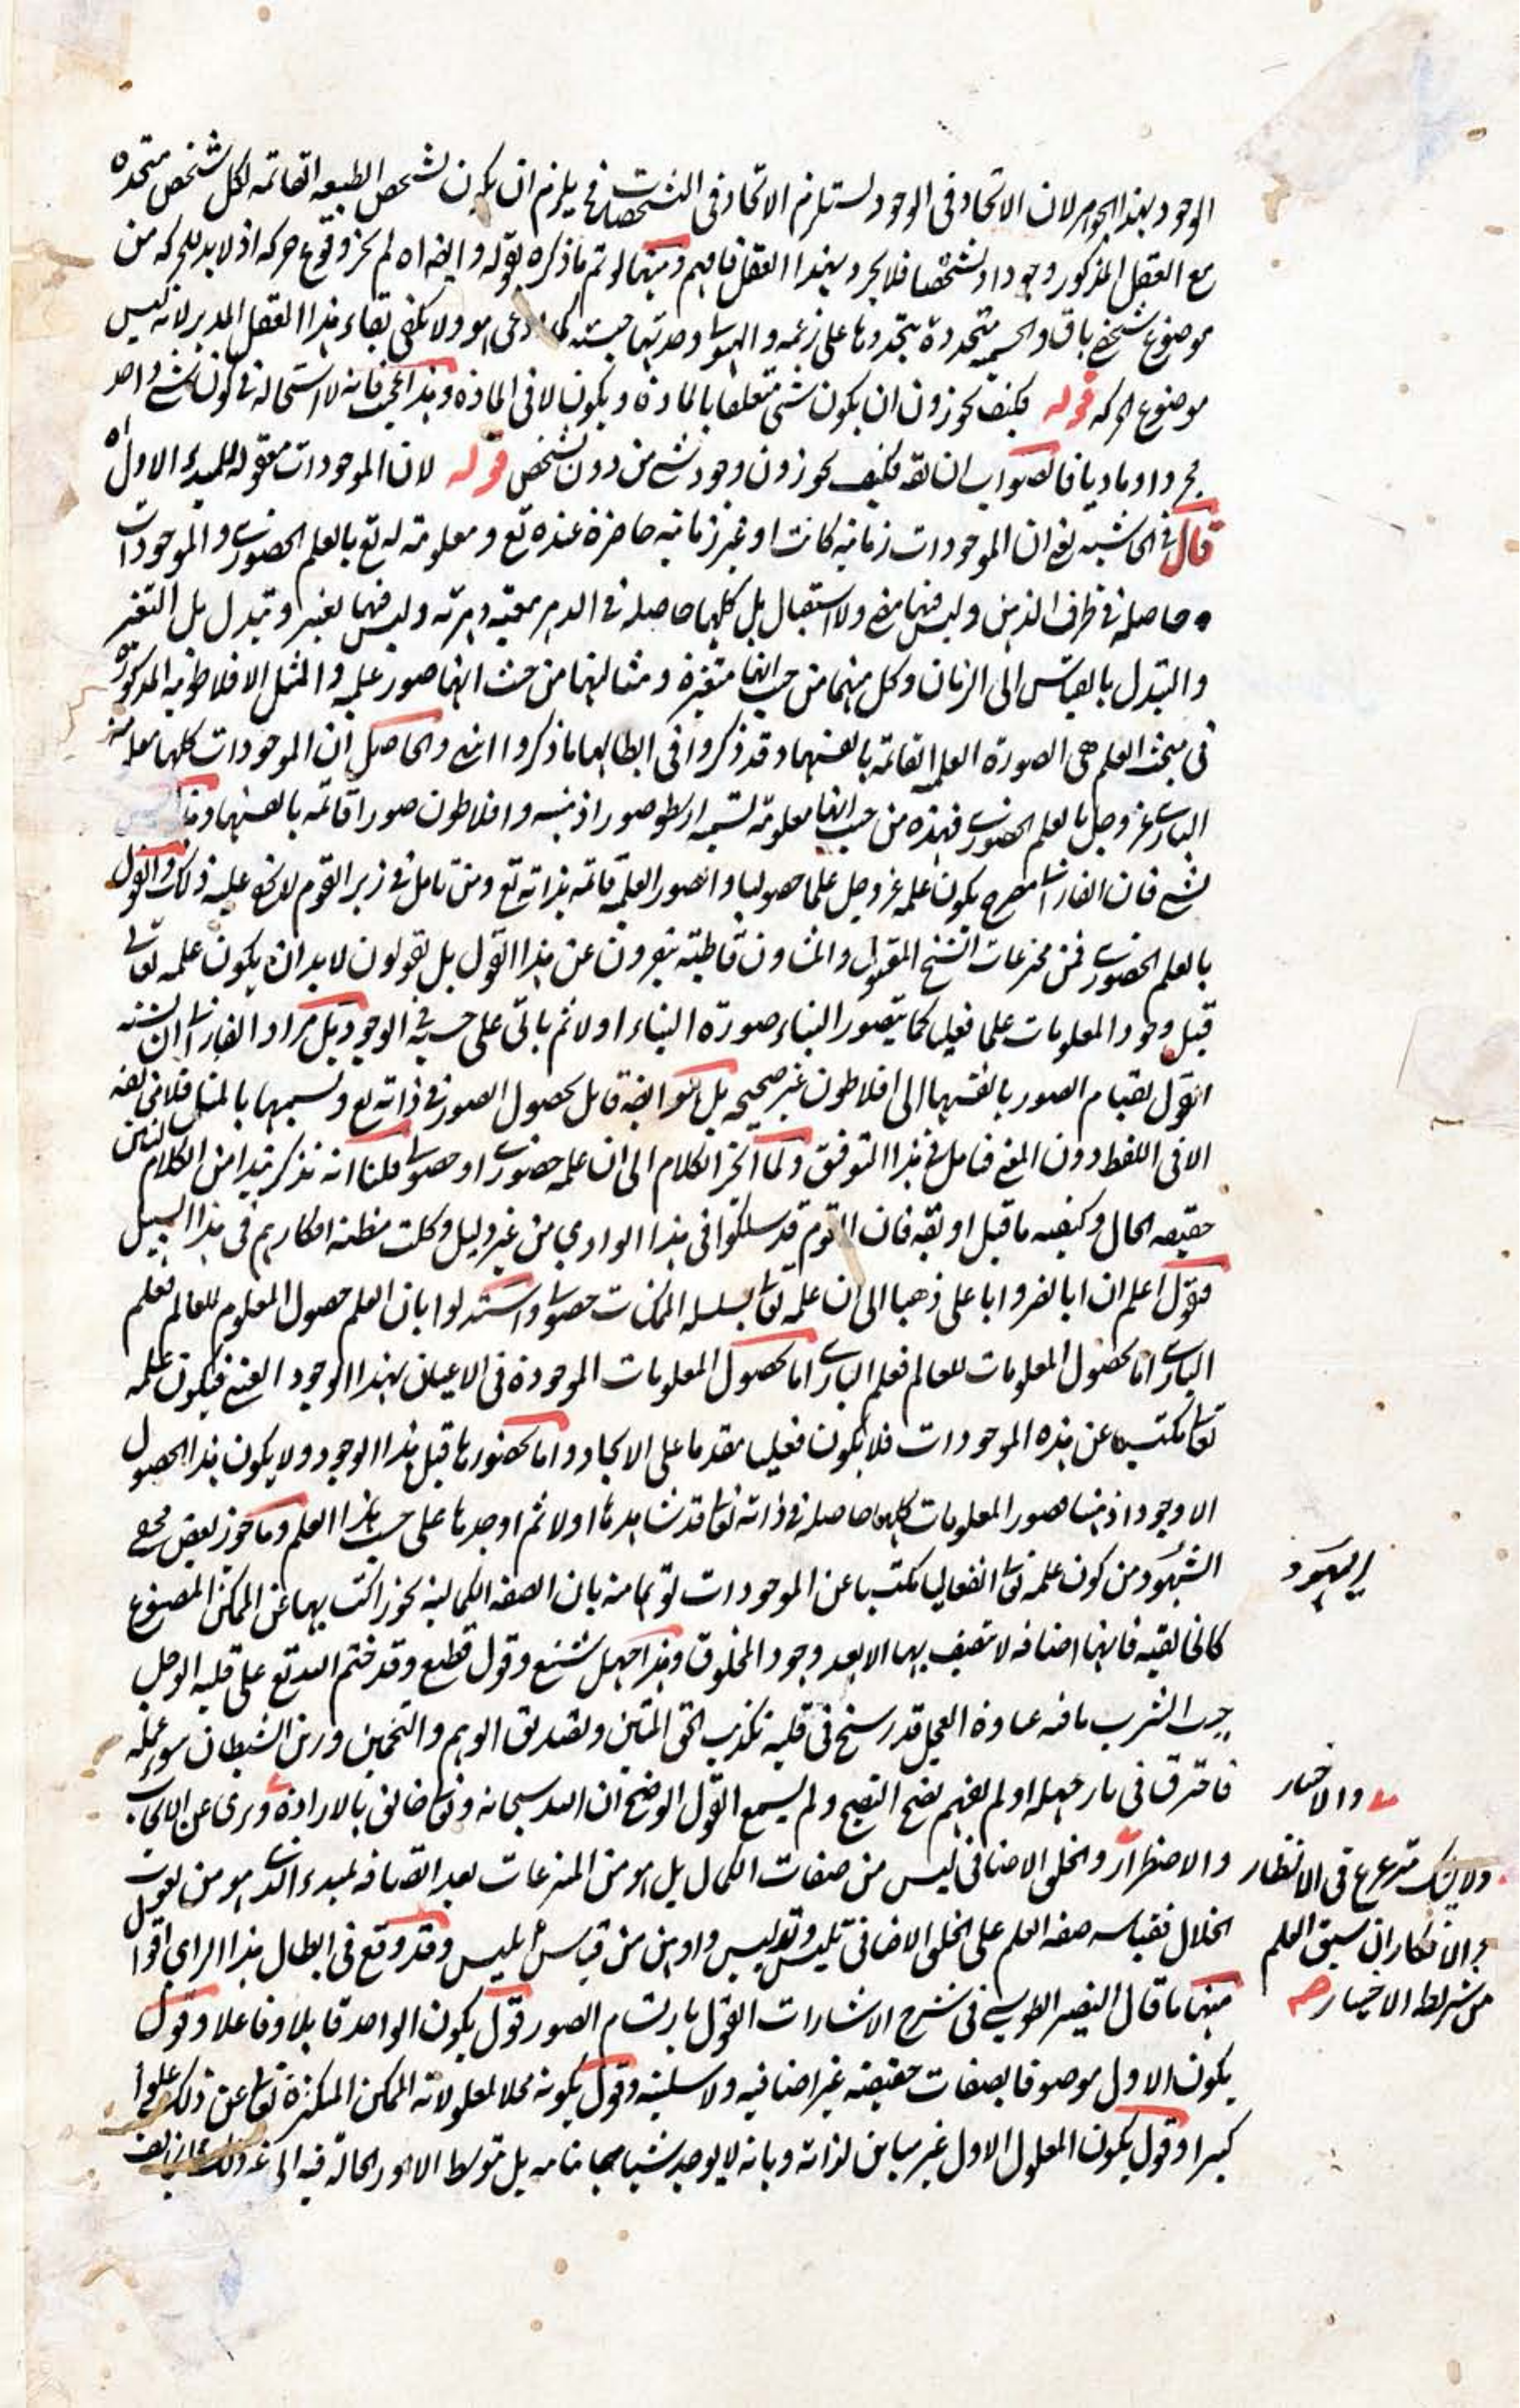 الوجود بهذا الجوهر لان الاتحاد فى الوجود لستلزم الاتحاد فى التشخصات فح يلزم ان يكون لشخص الطبيعه القائمه لكل شخص متحده
مع العقل المذكور وجودا و تشخصا فلا يجرد بهذا العقل فافهم ومنها لو تم ما ذكره بقوله و ايضا اه لم يجز وقوع حركه اذ لابد للحركه من
موضوع شخص باق والجسم متجددة بتجددها على زعمه و الهيولى وحدتها جنسيه كما ادعى هو ولا يكفى بقاء هذا العقل المدبر لانه ليس
موضوع الحركه قوله فكيف يجوزون ان يكون شئ متعلقا بالمادة و يكون لا فى المادة وهذا عجيب فانه لا استحاله فى كون شئ واحد
مجردا و ماديا فالصواب ان يقه فكيف يجوزون وجود شئ من دون تشخص قوله لان الموجودات معقوله للمبدء الاول اه
قال فى الحاشيه يعنى ان الموجودات زمانيه كانت او غير زمانيه حاضرة عنده تع و معلومة له تع بالعلم الحضورى و الموجودات
حاصله فى ظرف الذهن وليس فيها مضى ولا استقبال بل كلها حاصله فى الدهر معية دهرية وليس فيها تغير و تبدل بل التغير
والتبدل بالقياس الى الزمان وكل منهما من حيث انها متغيرة و مثالها من حيث انها صور علميه و المثل الافلاطونيه المذكورة
فى مبحث العلم هى الصورة العلميه القائمه بانفسها وقد ذكروا فى ابطالها ما ذكروا انتهى والحاصل ان الموجودات كلها معلومة
البارى عز وجل بالعلم الحضورى فهذه من حيث انها معلومة لتسميه ارسطو صورا ذهنيه و افلاطون صورا قائمه بانفسها وهذا ليس
بشئ فان الفارابى مصرح بكون علمه عز وجل علما حصوليا و الصور العلميه قائمه بذاته تع ومن تامل فى زبر القوم لا يخفى عليه ذلك والقول
بالعلم الحضورى فمن مخترعات الشيخ المقتول والمشاؤن قاطبة يتبرؤن عن هذا القول بل يقولون لابد ان يكون علمه تعالى
قبل وجود المعلومات علما فعليا كما يتصور البناء صورة البناء اولا ثم ياتى على حسبه فى الوجود بل مراد الفارابى ان نسبة
القول بقيام الصور بانفسها الى افلاطون غير صحيحه بل هو ايضا قائل بحصول الصور فى ذاته تع ونسميها بالمثل فلا مخالفه
الا فى اللفظ دون المعنى فتامل فى هذا التوفيق ولما انجر الكلام الى ان علمه حضورى او حصولى فلنا انه نذكر نبذا من الكلام لتبين
حقيقه الحال وكيفيه ما قيل او يقه فان القوم قد سلكوا فى هذا الوادى من غير دليل وكلت مطية افكارهم فى هذا السبيل
فنقول اعلم ان ابا نصر و ابا على ذهبا الى ان علمه تعالى بسلسله الممكنات حصولى واستدلوا بان العلم حصول المعلوم للعالم فعلم
البارى اما بحصول المعلومات للعالم فعلم البارى اما بحصول المعلومات الموجودة فى الاعيان بهذا الوجود العينى فيكون علمه
تعالى مكتسبا عن هذه الموجودات فلا يكون فعليا مقدما على الايجاد و اما بحضورها قبل هذا الوجود ولا يكون هذا الحصول
الا وجودا ذهنيا فصور المعلومات كلها حاصله فى ذاته تعالى قد شاهدها اولا ثم اوجدها على حسب هذا العلم وما جوز بعض محبى
الشهود من كون علمه تعالى انفعاليا مكتسبا عن الموجودات توهما منه بان الصفه الكماليه يجوز اكتسابها عن الممكن المصنوع
كالخالقيه فانها اضافه لا تتصف بها الا بعد وجود المخلوق وهذا جهل شنيع وقول قطيع وقد ختم الله تع على قلبه الوجل
حب الشرب مافيه عبادة العجل قد رسخ فى قلبه تكذيب الحق المتين وتصديق الوهم والتخمين وزين الشيطان سوء عمله
فاحترق فى نار جهله او لم يفهم نصح النصيح ولم يسمع القول الواضح ان الله سبحانه وتعالى خالق بالارادة وبرى عن الايجاب
والاضطرار والخلق الاضافى ليس من صفات الكمال بل هو من المنتزعات بعد اتصافه لمبدء الذى هو من نعوت
الجلال فقياسه صفه العلم على الخلق الاضافى تلبيس وتدليس واوهن من قياس ابليس وقد وقع فى ابطال هذا الراى اقوال
منها ما قال النصير الطوسى فى شرح الاشارات القول بارتسام الصور قول بكون الواحد قابلا وفاعلا وقول
بكون الاول موصوفا بصفات حقيقيه غير اضافيه ولا سلبيه وقول بكونه محلا لمعلولاته الممكنه المتكثرة تعالى عن ذلك علوا
كبيرا وقول بكون المعلول الاول غير مباين لذاته وبانه لا يوجد شيئا مما يباينه بل بتوسط الامور الحاله فيه الى غير ذلك مما يخالف
اليهود
والاختيار
ولا يشك مترعرع فى الانظار
والافكار ان سبق العلم
من شرائط الاختيار صح